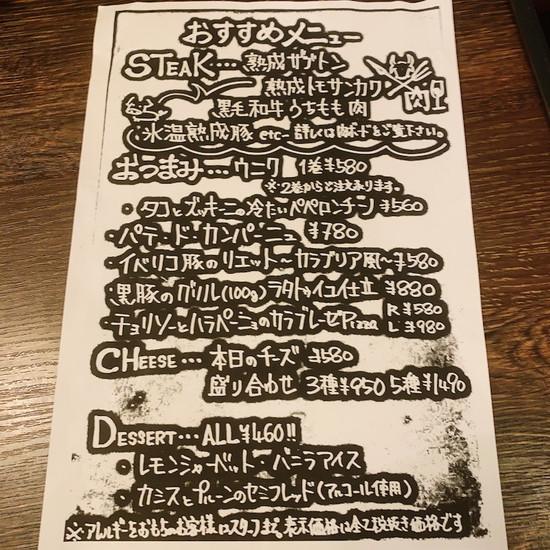 おすすめメニュー
STEAK… 熟成ザブトン
熟成トモサンカク
黒毛和牛うちもも肉
肉
氷温熟成豚 etc… 詳しくは肉ボードをご覧下さい。
おつまみ… ウニク 1巻¥580
※2巻からご注文承ります。
・タコとズッキーニの冷たいペペロンチーノ ¥560
・パテ・ド・カンパーニュ ¥780
・イベリコ豚のリエット~カラブリア風~ ¥580
・黒豚のグリル(100g) ラタトゥイユ仕立 ¥880
・チョリソーとハラペーニョのカラブレーゼPizza R ¥580 L ¥980
CHEESE… 本日のチーズ ¥580
盛り合わせ 3種¥950 5種¥1490
DESSERT… ALL ¥460!!
・レモンシャーベット・バニラアイス
・カシスとプルーンのセミフレッド(アルコール使用)
※アレルギーをおもちのお客様はスタッフまで 表示価格は全て税抜き価格です